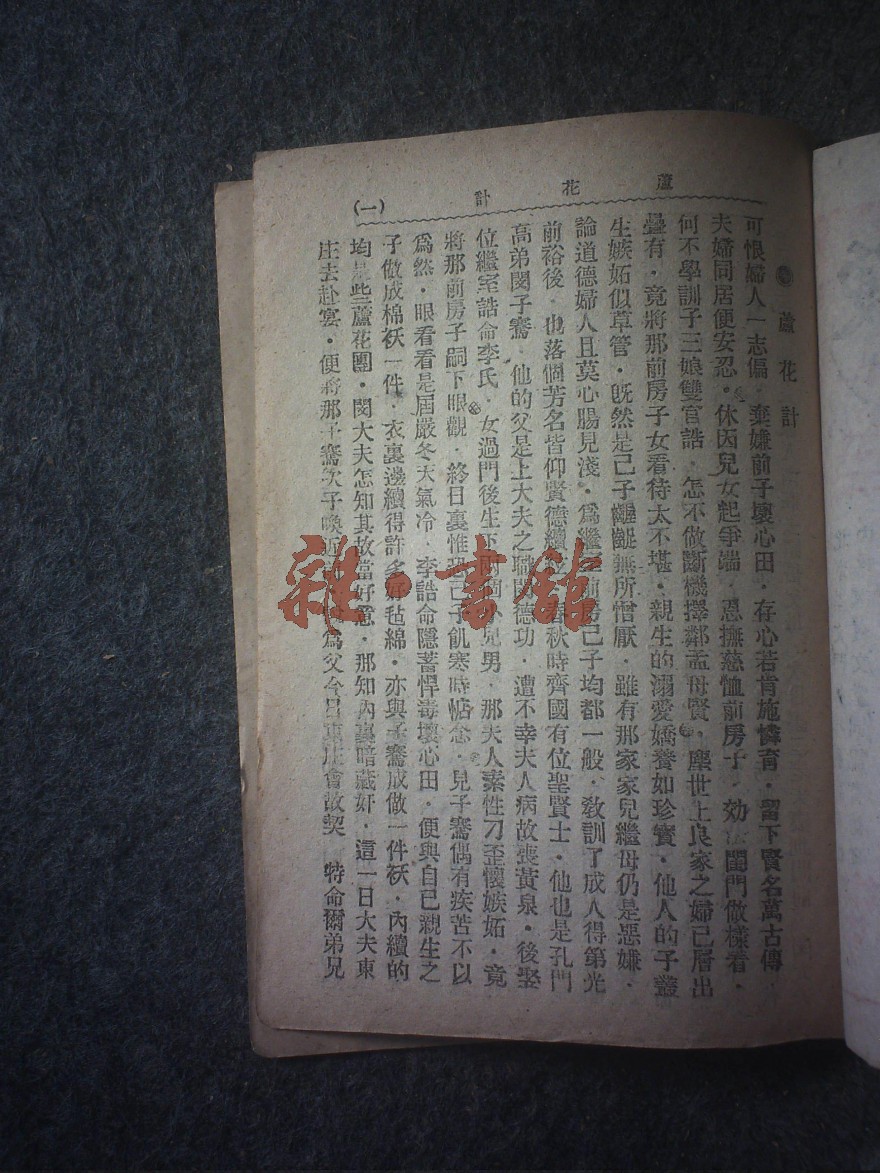 蘆花計
(一)
蘆花計
可恨婦人一志偏·棄嫌前子壞心田·存心若肯施憐育·留下賢名萬古傳·
夫婦同居便安忍·休因兒女起爭端·惡撫慈恤前房子·効法閨門做樣着·
何不學訓子三娘雙官誥·怎不做斷機擇鄰孟母賢·塵世上良家之婦已層出
疊有·竟將那前房子女看待太不堪·親生的溺愛嬌養如珍寶·他人的子叢
生嫉妬似草管·既然是己子齷齪無所憎厭·雖有那家家兒繼母仍是惡嫌·
論道德婦人且莫心腸見淺·為繼室前房己子均都一般·教訓了成人得第光
前裕後·也落個芳名皆仰賢德續絃·春秋時齊國有位聖賢士·他也是孔門
高弟閔子騫·他的父是上大夫之職閔德功·遭不幸夫人病故喪黃泉·後娶
位繼室誥命李氏·女過門後生下兩個小兒男·那夫人素性刁歪懷嫉妬·竟
將那前房子嗣下眼觀·終日裏惟恐己子飢寒時惦念·見子騫偶有疾苦不以
爲然·眼看看是屆嚴冬天氣冷·李誥命隱蓄悍毒壞心田·便與自己親生之
子做成棉袄一件·衣裏邊續得許多好毡綿·亦與子騫成做一件袄·內續的
均是些蘆花團·閔大夫怎知其故當好意·那知內裏暗藏奸·這一日大夫東
庄去赴宴·便將那子騫次子喚近前 為父今日東庄會故契 特命爾弟兄
雜·書館